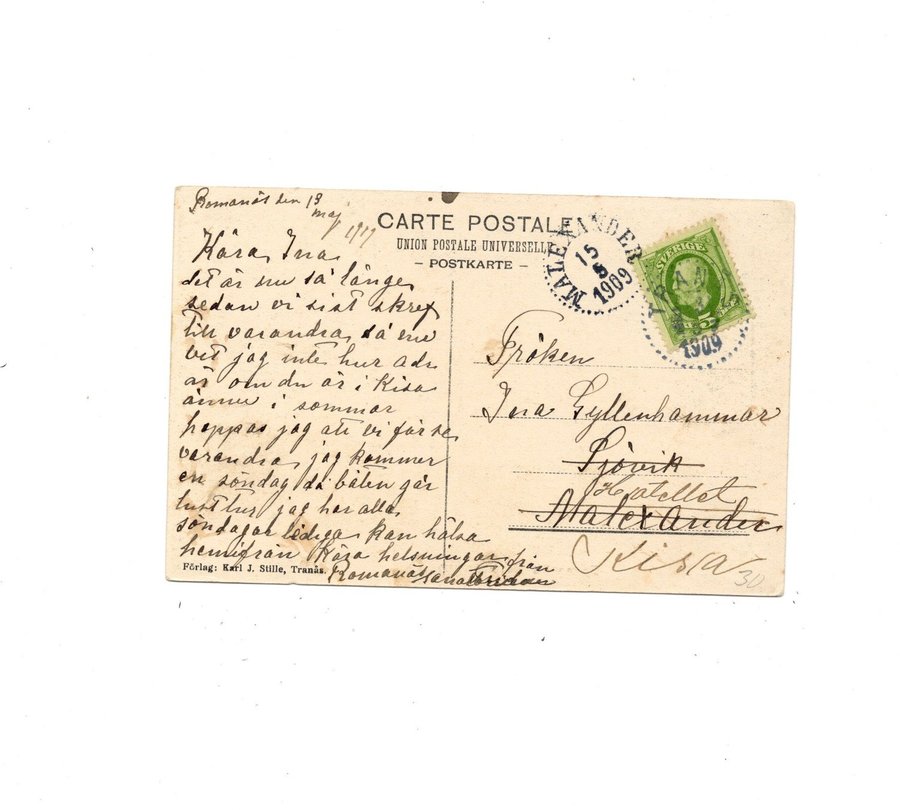 Romanäs den 13
maj
CARTE POSTALE
UNION POSTALE UNIVERSELLE
– POSTKARTE –
MALEXANDER
15
5
1909
SVERIGE
5
TRANÅS
1909
Kära Ina
det är nu så länge
sedan vi sist skref
till varandra, så nu
vet jag inte hur adr.
är om du är i Kisa
ännu i sommar
hoppas jag att vi får se
varandra, jag kommer
en söndag då båten går
lusttur jag har alla
söndagar lediga kan hälsa
hemifrån Kära helsningar från
Romanäs
Fröken
Ina Gyllenhammar
Sjövik
Hotellet
Malexander
Kisa
30
Förlag: Karl J. Stille, Tranås.